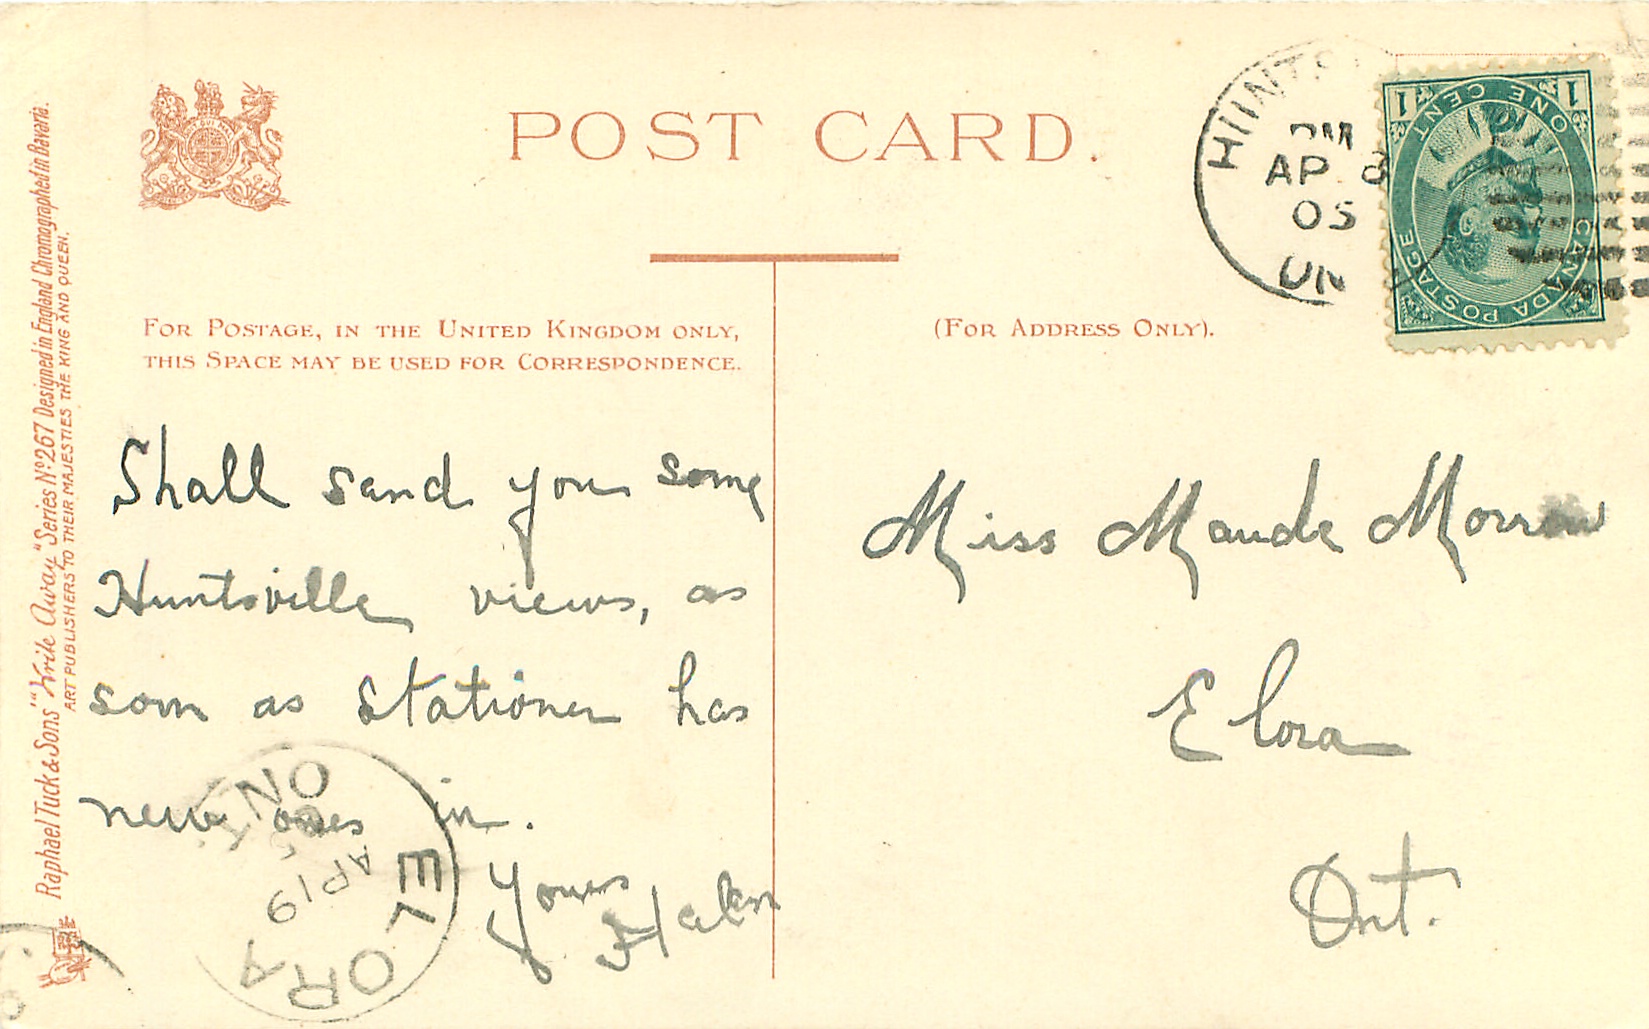 POST CARD.
FOR POSTAGE, IN THE UNITED KINGDOM ONLY,
THIS SPACE MAY BE USED FOR CORRESPONDENCE.
(FOR ADDRESS ONLY).
Shall send you some
Huntsville views, as
soon as stationer has
new ones in.
Yours
Helen
Miss Maude Morrow
Elora
Ont.
Raphael Tuck & Sons' "Write Away" Series Nº 267 Designed in England Chromographed in Bavaria.
ART PUBLISHERS TO THEIR MAJESTIES THE KING AND QUEEN.
PM
AP 8
05
CANADA POSTAGE
ONE CENT
1 1
ELORA
ONT
AP 19